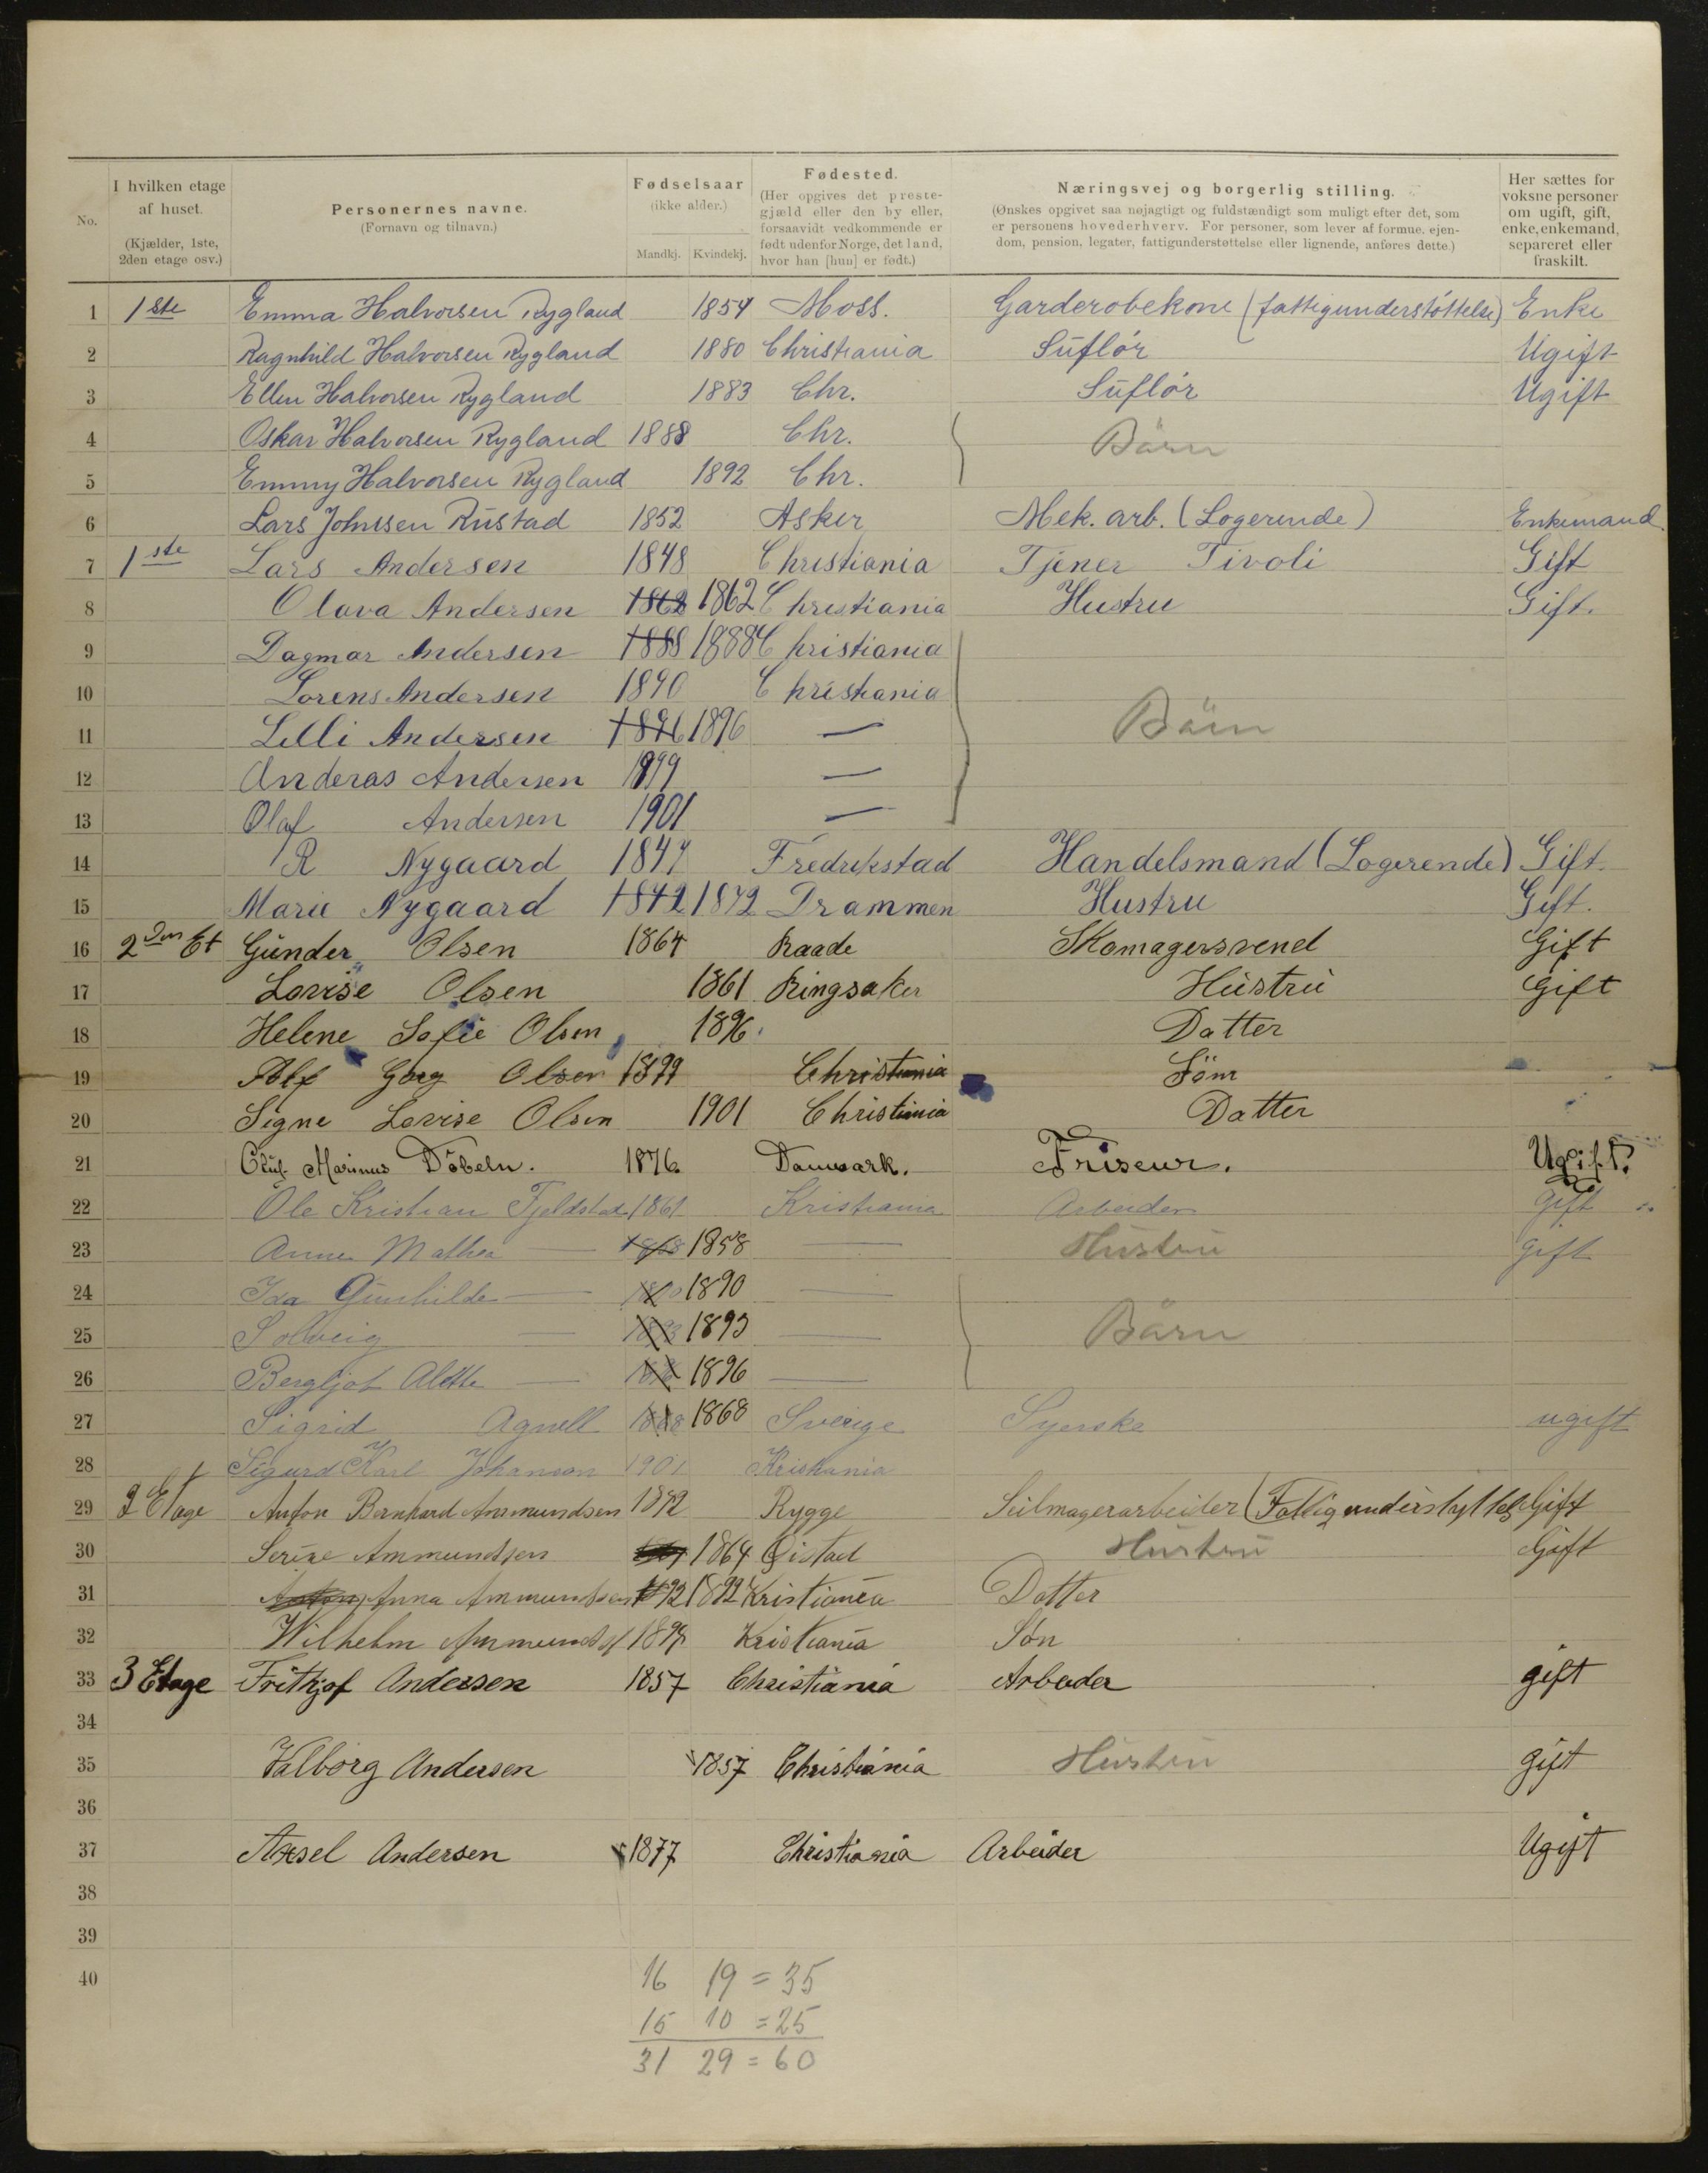 No. | I hvilken etage af huset. (Kjælder, 1ste, 2den etage osv.) | Personernes navne. (Fornavn og tilnavn.) | Fødselsaar (ikke alder.) Mandkj. Kvindekj. | Fødested. (Her opgives det prestegjæld eller den by eller, forsaavidt vedkommende er født udenfor Norge, det land, hvor han [hun] er født.) | Næringsvej og borgerlig stilling. (Ønskes opgivet saa nøjagtigt og fuldstændigt som muligt efter det, som er personens hovederhverv. For personer, som lever af formue, ejendom, pension, legater, fattigunderstøttelse eller lignende, anføres dette.) | Her sættes for voksne personer om ugift, gift, enke, enkemand, separeret eller fraskilt.
1 1ste Emma Halvorsen Rygland 1854 Moss. Garderobekone (fattigunderstøttelse) Enke
2 Ragnhild Halvorsen Rygland 1880 Christiania Suflør Ugift
3 Ellen Halvorsen Rygland 1883 Chr. Suflør Ugift
4 Oskar Halvorsen Rygland 1888 Chr. Börn
5 Emmy Halvorsen Rygland 1892 Chr.
6 Lars Johnsen Rustad 1852 Asker Mek. arb. (Logerende) Enkemand.
7 1ste Lars Andersen 1848 Christiania Tjener Tivoli Gift
8 Olava Andersen 1862 1862 Christiania Hustru Gift.
9 Dagmar Andersen 1888 1888 Christiania
10 Lorens Andersen 1890 Christiania
11 Lilli Andersen 1896 1896 — Börn
12 Anderas Andersen 1899 —
13 Olaf Andersen 1901 —
14 R Nygaard 1847 Fredrikstad Handelsmand (Logerende) Gift.
15 Marie Nygaard 1842 1842 Drammen Hustru Gift.
16 2den Et Gunder Olsen 1864 Raade Skomagersvend Gift
17 Lovise Olsen 1861 Ringsaker Hustru Gift
18 Helene Sofie Olsen 1896 Datter
19 Olsen 1899 Christiania Sönn
20 Signe Lovise Olsen 1901 Christiania Datter
21 Oluf Marinus Döbeln. 1876 Danmark. Friseur. Ugift.
22 Ole Kristian Fjeldstad 1861 Kristiania Arbeider gift
23 Anne Mathea — 1858 1858 — Hustru gift
24 Ida Gunhilde — 1890 1890 —
25 Solveig — 1893 1893 — Börn
26 Bergljot Alette — 1896 1896 —
27 Sigrid Agnell 1868 1868 Sverige Syerske ugift
28 Sigurd Karl Johanson 1901 Kristiania
29 2 Etage Anton Bernhard Ammundsen 1872 Rygge Seilmagerarbeider (Fattigunderstyttelse Gift
30 Serine Ammundsen 1864 Hustru Gift
31 Anna Ammundsen 1892 1892 Kristiania Datter
32 Wilhelm Ammunds 1898 Kristiania Søn
33 3 Etage Frithjof Andersen 1857 Christiania Arbeider gift
34
35 Valborg Andersen 1857 Christiania Hustru gift
36
37 Axsel Andersen 1877 Christiania Arbeider Ugift
38
39
40
16 19 = 35
15 10 = 25
31 29 = 60